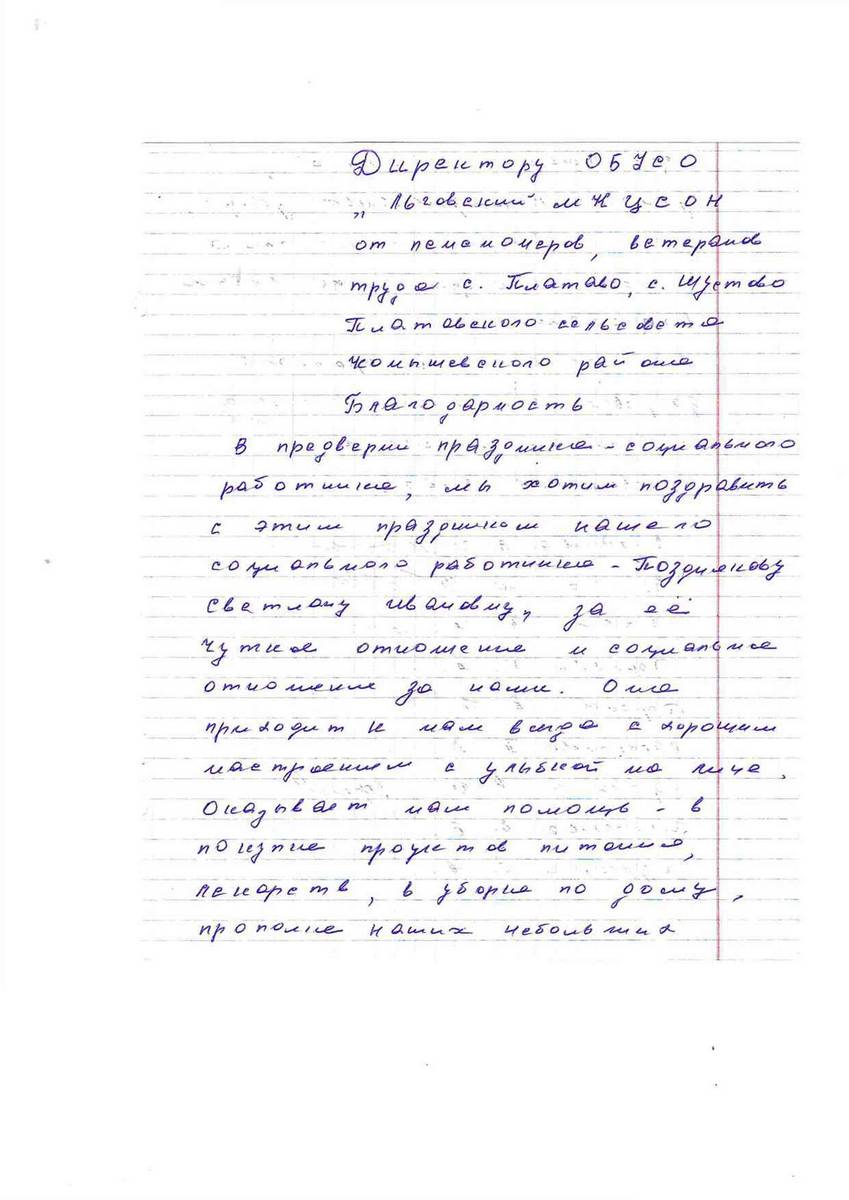 Директору ОБУСО
„Льговский МКЦСОН
от пенсионеров, ветеранов
труда с. Платаво, с. Шустово
Платавского сельсовета
Конышевского района
Благодарность
В предверии праздника - социального
работника, мы хотим поздравить
с этим праздником нашего
социального работника - Позднякову
Светлану Ивановну, за её
чуткое отношение и социальное
отношение за нами. Она
приходит к нам всегда с хорошим
настроением с улыбкой на лице,
Оказывает нам помощь - в
покупке продуктов питания,
лекарств, в уборке по дому,
прополке наших небольших